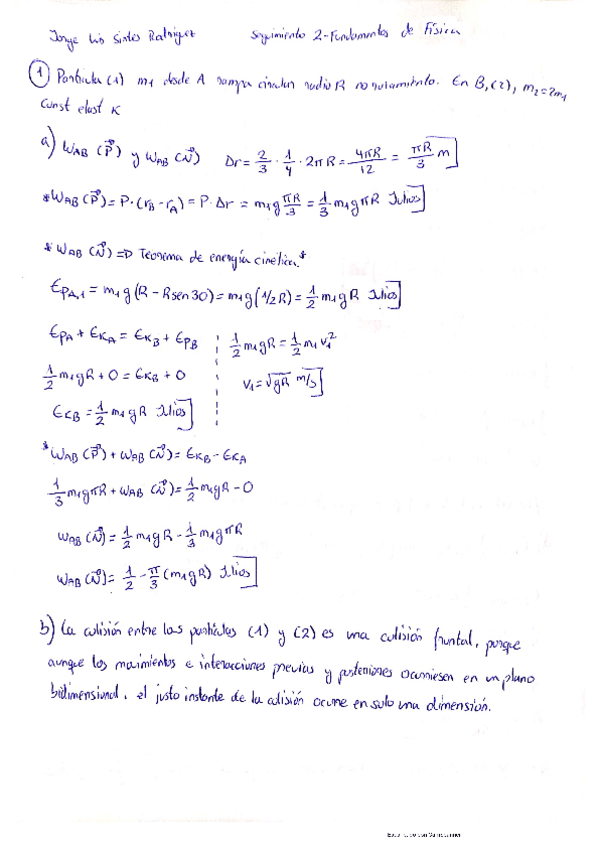 Jorge Luis Sintes Rodríguez Seguimiento 2-Fundamentos de Física
① Partícula (1) m1 desde A rampa circular radio R no rozamiento. En B, (2), m2=2m1
Const elast K
a) WAB (P⃗) y WAB (N⃗) Δr = 2/3 · 1/4 · 2πR = 4πR/12 = πR/3 m
* WAB (P⃗) = P·(rB - rA) = P·Δr = m1g πR/3 = 1/3 m1gπR Julios
* WAB (N⃗) => Teorema de energía cinética.*
EPA,1 = m1g (R - Rsen30) = m1g (1/2 R) = 1/2 m1gR Julios
EPA + EKA = EKB + EPB 1/2 m1gR = 1/2 m1 v1²
1/2 m1gR + 0 = EKB + 0 v1 = √gR m/s
EKB = 1/2 m1gR Julios
* WAB (P⃗) + WAB (N⃗) = EKB - EKA
1/3 m1gπR + WAB (N⃗) = 1/2 m1gR - 0
WAB (N⃗) = 1/2 m1gR - 1/3 m1gπR
WAB (N⃗) = 1/2 - π/3 (m1gR) Julios
b) La colisión entre las partículas (1) y (2) es una colisión frontal, porque
aunque los movimientos e interacciones previas y posteriores ocurriesen en un plano
bidimensional, el justo instante de la colisión ocurre en solo una dimensión.